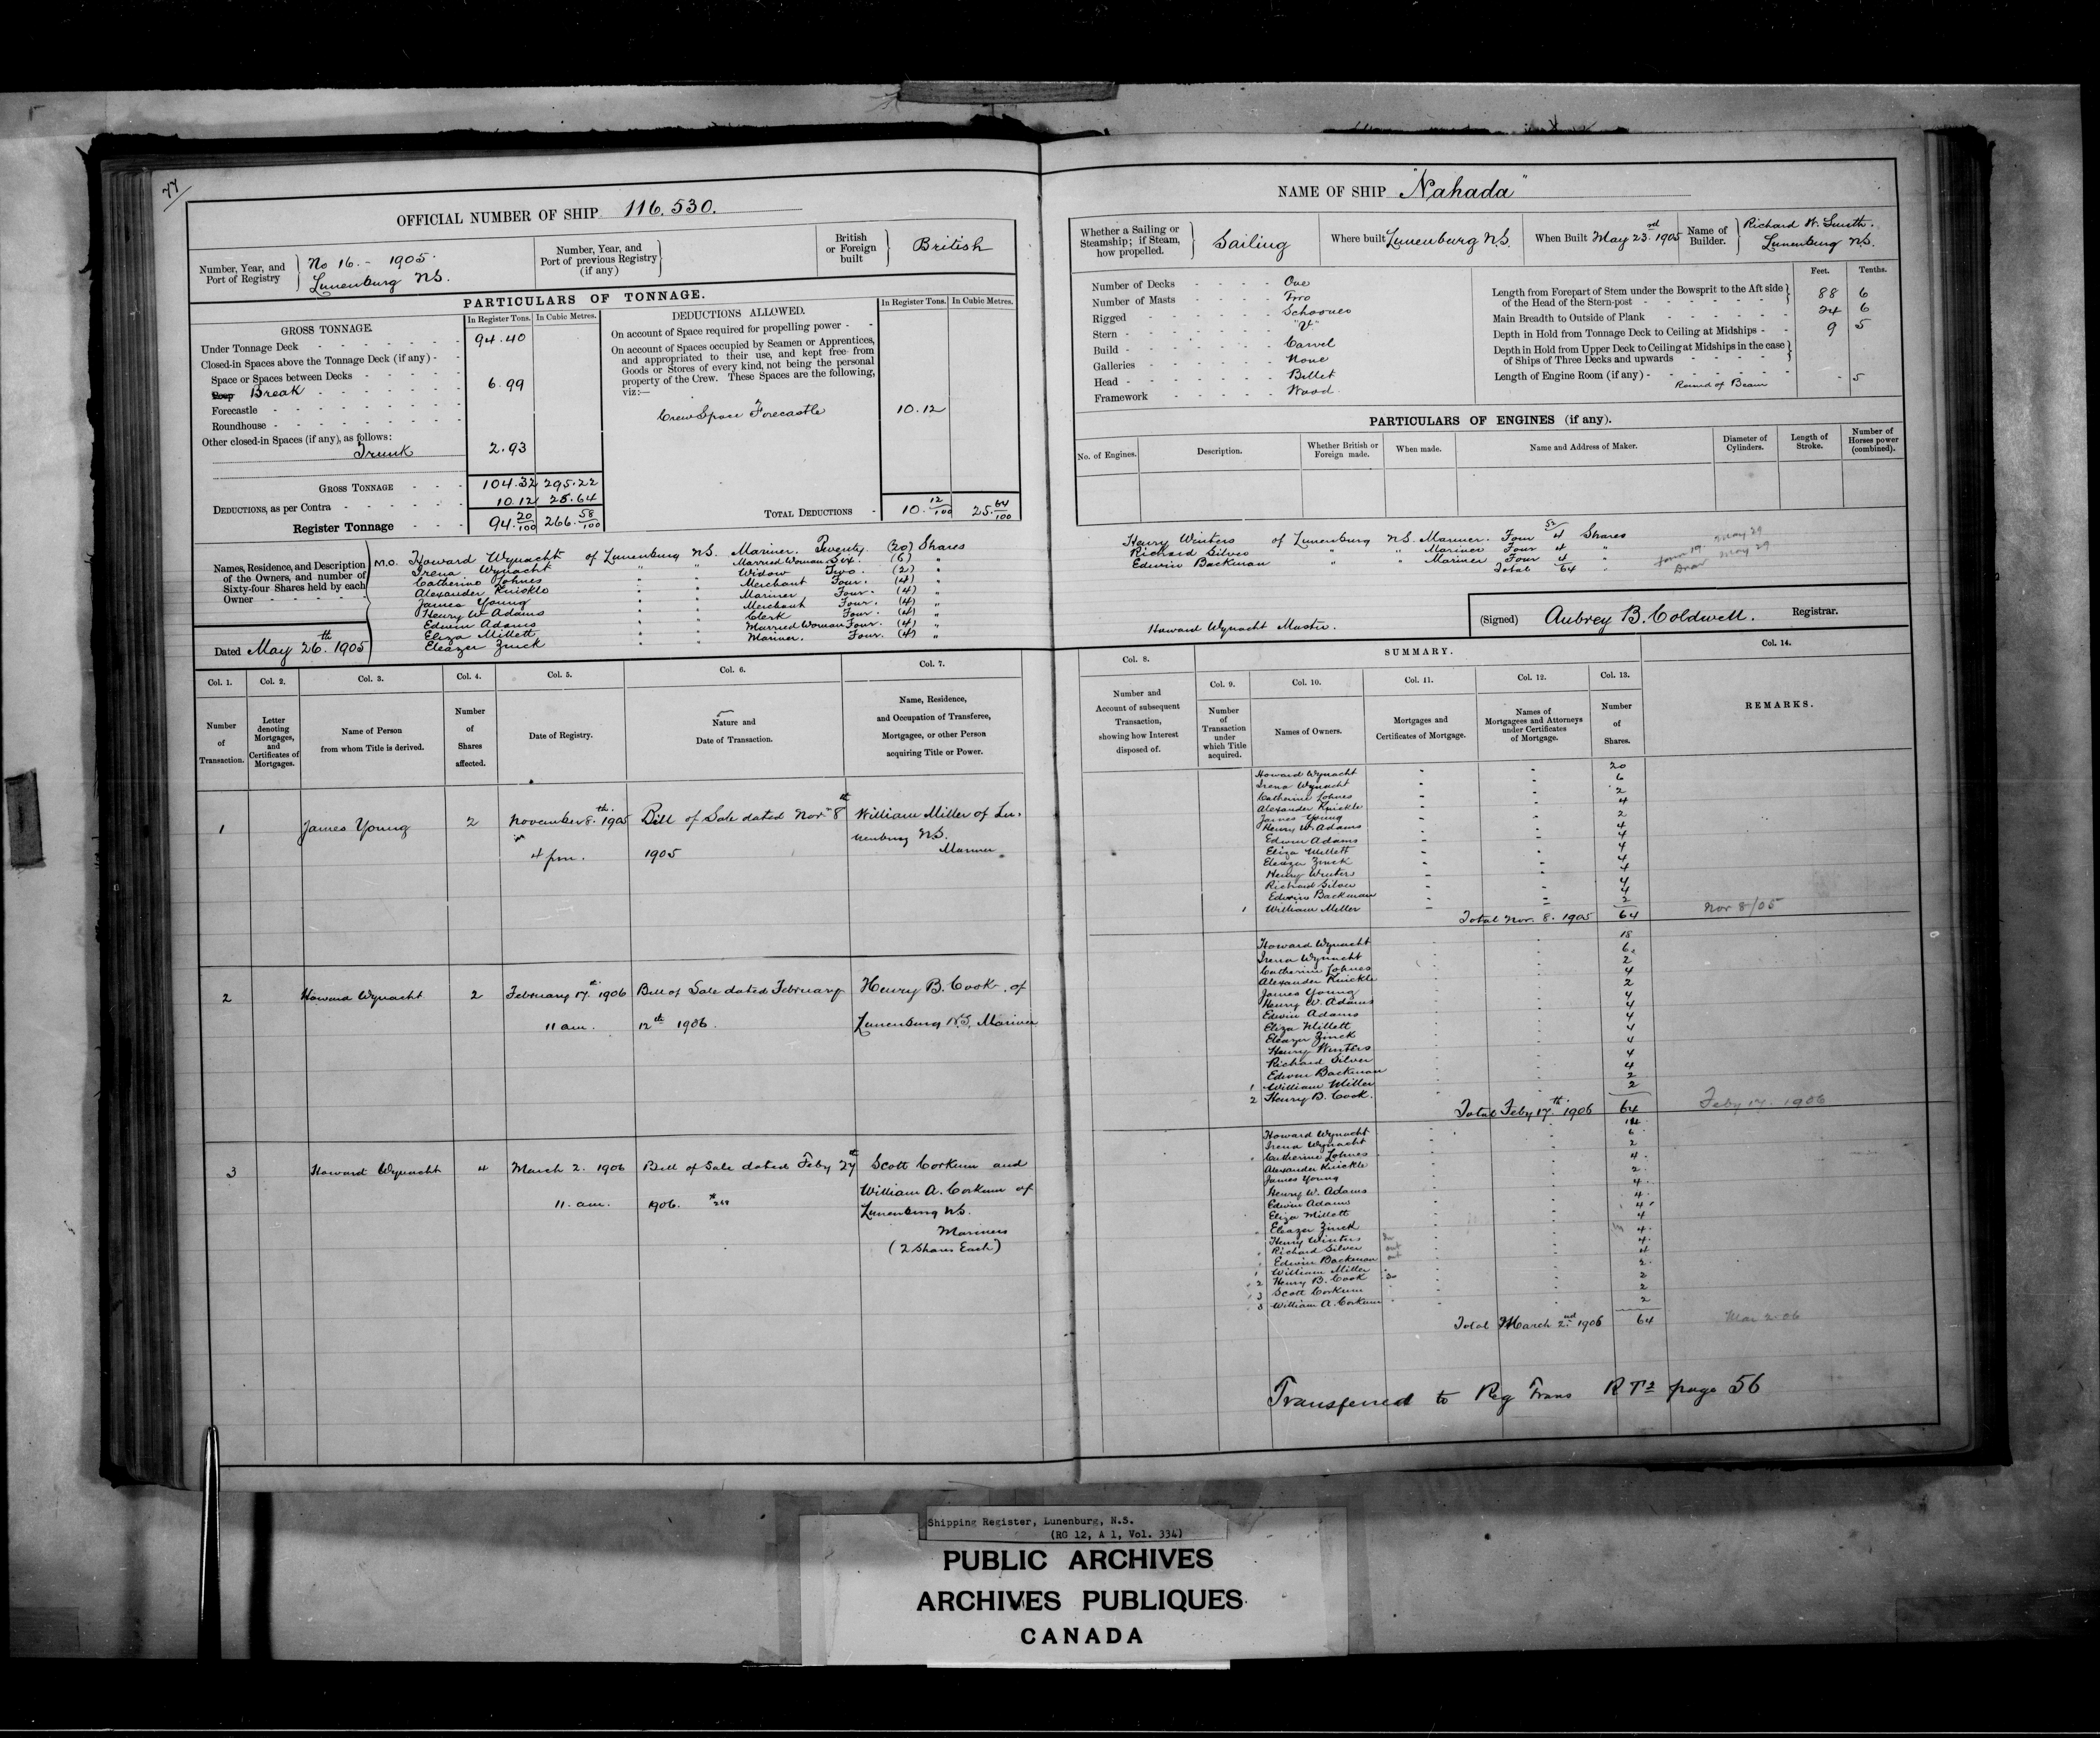 77
OFFICIAL NUMBER OF SHIP 116.530.
Number, Year, and Port of Registry
No 16. - 1905.
Lunenburg N.S.
Number, Year, and Port of previous Registry (if any)
British or Foreign built
British
PARTICULARS OF TONNAGE.
GROSS TONNAGE.
In Register Tons.
In Cubic Metres.
Under Tonnage Deck 94.40
Closed-in Spaces above the Tonnage Deck (if any)
Space or Spaces between Decks
Poop Break 6.99
Forecastle
Roundhouse
Other closed-in Spaces (if any), as follows:
Trunk 2.93
GROSS TONNAGE 104.32 295.22
DEDUCTIONS, as per Contra 10.12 28.64
Register Tonnage 94.20/100 266.58/100
DEDUCTIONS ALLOWED.
In Register Tons.
In Cubic Metres.
On account of Space required for propelling power
On account of Spaces occupied by Seamen or Apprentices,
and appropriated to their use, and kept free from
Goods or Stores of every kind, not being the personal
property of the Crew. These Spaces are the following,
viz:—
Crew Space Forecastle 10.12
TOTAL DEDUCTIONS 10.12/100 25.64/100
Names, Residence, and Description
of the Owners, and number of
Sixty-four Shares held by each
Owner
M.O. Howard Wynacht of Lunenburg N.S. Mariner. Twenty (20) Shares
Irena Wynacht " " Married Woman Six. (6) "
Catherine Lohnes " " Widow Two. (2) "
Alexander Knickle " " Merchant Four. (4) "
James Young " " Mariner Four. (4) "
Henry W. Adams " " Merchant Four. (4) "
Edwin Adams " " Clerk Four. (4) "
Eliza Millett " " Married Woman Four. (4) "
Eleazer Zinck " " Mariner. Four. (4) "
Dated May 26th. 1905
Col. 1.
Number of Transaction.
Col. 2.
Letter denoting Mortgages, and Certificates of Mortgages.
Col. 3.
Name of Person from whom Title is derived.
Col. 4.
Number of Shares affected.
Col. 5.
Date of Registry.
Col. 6.
Nature and Date of Transaction.
Col. 7.
Name, Residence, and Occupation of Transferee, Mortgagee, or other Person acquiring Title or Power.
1 James Young 2 November 8.th 1905 Bill of Sale dated Nov. 8th William Miller of Lu-
4 pm. 1905 nenburg N.S.
Mariner
2 Howard Wynacht 2 February 17.th 1906 Bill of Sale dated February Henry B. Cook, of
11 am. 12th 1906. Lunenburg N.S. Mariner
3 Howard Wynacht 4 March 2. 1906 Bill of Sale dated Feby 27th Scott Corkum and
William A. Corkum of
11. am. 1906. Lunenburg N.S.
Mariners
(2 Shares Each)
NAME OF SHIP "Nahada"
Whether a Sailing or Steamship; if Steam, how propelled.
Sailing
Where built Lunenburg N.S.
When Built May 23.rd 1905
Name of Builder.
Richard W. Smith.
Lunenburg N.S.
Number of Decks One
Number of Masts Two
Rigged Schooner
Stern "V"
Build Carvel
Galleries None
Head Billet
Framework Wood.
Feet. Tenths.
Length from Forepart of Stem under the Bowsprit to the Aft side
of the Head of the Stern-post 88 6
Main Breadth to Outside of Plank 24 6
Depth in Hold from Tonnage Deck to Ceiling at Midships 9 5
Depth in Hold from Upper Deck to Ceiling at Midships in the case
of Ships of Three Decks and upwards
Length of Engine Room (if any)
Round of Beam - 5
PARTICULARS OF ENGINES (if any).
No. of Engines.
Description.
Whether British or Foreign made.
When made.
Name and Address of Maker.
Diameter of Cylinders.
Length of Stroke.
Number of Horses power (combined).
52
Henry Winters of Lunenburg N.S. Mariner. Four 4 Shares
Richard Silver " " Mariner Four 4 "
Edwin Backman " " Mariner Four 4 "
Total 64 "
Form 19. May 29
May 29
Howard Wynacht Master.
(Signed) Aubrey B. Coldwell. Registrar.
Col. 8.
Number and Account of subsequent Transaction, showing how Interest disposed of.
SUMMARY.
Col. 9.
Number of Transaction under which Title acquired.
Col. 10.
Names of Owners.
Col. 11.
Mortgages and Certificates of Mortgage.
Col. 12.
Names of Mortgagees and Attorneys under Certificates of Mortgage.
Col. 13.
Number of Shares.
Col. 14.
REMARKS.
Howard Wynacht - - 20
Irena Wynacht - - 6
Catherine Lohnes - - 2
Alexander Knickle - - 4
James Young - - 2
Henry W. Adams - - 4
Edwin Adams - - 4
Eliza Millett - - 4
Eleazer Zinck - - 4
Henry Winters - - 4
Richard Silver - - 4
Edwin Backman - - 4
1 William Miller - - 2
Total Nov. 8. 1905 64 Nov 8/05
Howard Wynacht 18
Irena Wynacht 6
Catherine Lohnes 2
Alexander Knickle 4
James Young 2
Henry W. Adams 4
Edwin Adams 4
Eliza Millett 4
Eleazer Zinck 4
Henry Winters 4
Richard Silver 4
Edwin Backman 4
1 William Miller 2
2 Henry B. Cook. 2
Total Feby 17.th 1906 64 Feby 17. 1906
Howard Wynacht 14
Irena Wynacht 6
Catherine Lohnes 2
Alexander Knickle 4
James Young 2
Henry W. Adams 4
Edwin Adams 4
Eliza Millett 4
Eleazer Zinck 4
Henry Winters 4
Richard Silver 4
Edwin Backman 4
1 William Miller 2
2 Henry B. Cook 2
3 Scott Corkum 2
3 William A. Corkum 2
Total March 2nd 1906 64 Mar 2 06
Transferred to Reg Trans R T2 page 56
Shipping Register, Lunenburg, N.S.
(RG 12, A 1, Vol. 334)
PUBLIC ARCHIVES
ARCHIVES PUBLIQUES
CANADA